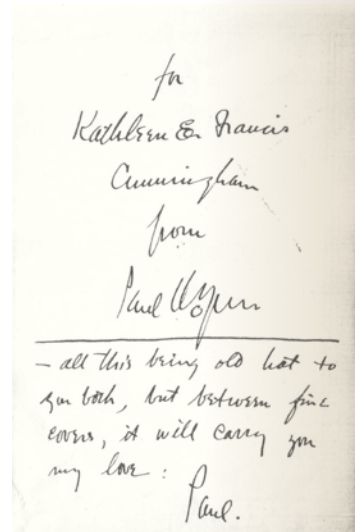 for
Kathleen & Francis
Cunningham
from
Paul
— all this being old hat to
you both, but between fine
covers, it will carry you
my love :
Paul.